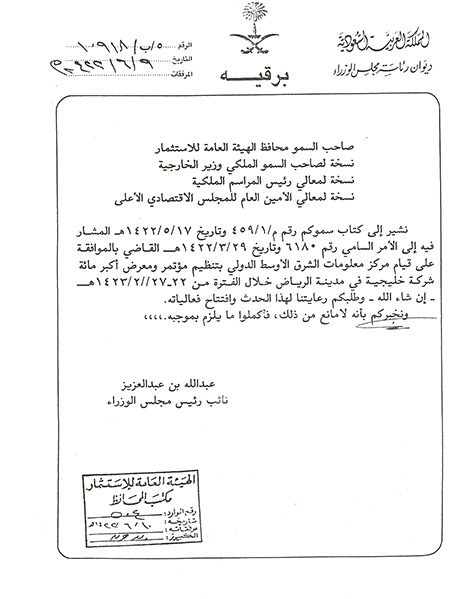 المملكة العربية السعودية
ديوان رئاسة مجلس الوزراء
برقيه
الرقم ٥/ب/١٠٩١٨
التاريخ ١٤٢٢/٦/٩
المرفقات
صاحب السمو محافظ الهيئة العامة للاستثمار
نسخة لصاحب السمو الملكي وزير الخارجية
نسخة لمعالي رئيس المراسم الملكية
نسخة لمعالي الأمين العام للمجلس الاقتصادي الأعلى
نشير إلى كتاب سموكم رقم م/٤٥٩/١ وتاريخ ١٤٢٢/٥/١٧هـ المشار
فيه إلى الأمر السامي رقم ٦١٨٠ وتاريخ ١٤٢٢/٣/٢٩هـ القاضي بالموافقة
على قيام مركز معلومات الشرق الاوسط الدولي بتنظيم مؤتمر ومعرض أكبر مائة
شركة خليجية في مدينة الرياض خلال الفترة من ٢٢-١٤٢٣/٢//٢٧هـ
- إن شاء الله - وطلبكم رعايتنا لهذا الحدث وافتتاح فعالياته.
ونخبركم بأنه لامانع من ذلك، فأكملوا ما يلزم بموجبه،،،،
عبدالله بن عبدالعزيز
نائب رئيس مجلس الوزراء
الهيئة العامة للاستثمار
مكتب المحافظ
رقم الوارد: ٥٠٤
تاريخه: ١٤٢٢/٦/١٠هـ
مرفقاته: